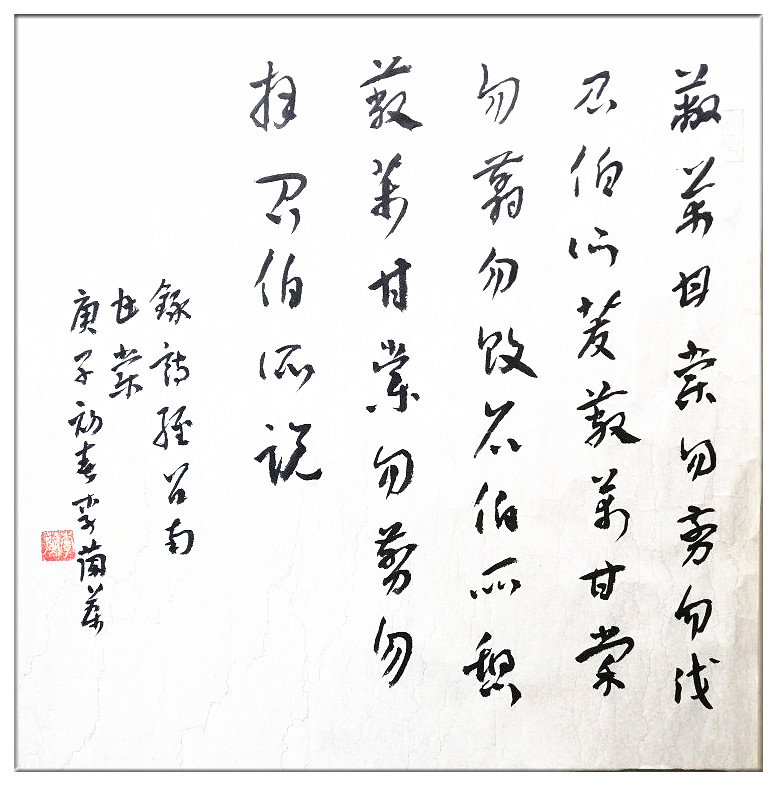 蔽芾甘棠勿剪勿伐
召伯所茇蔽芾甘棠
勿翦勿败召伯所憩
蔽芾甘棠勿剪勿
拜召伯所说
錄詩經召南
甘棠
庚子初春李